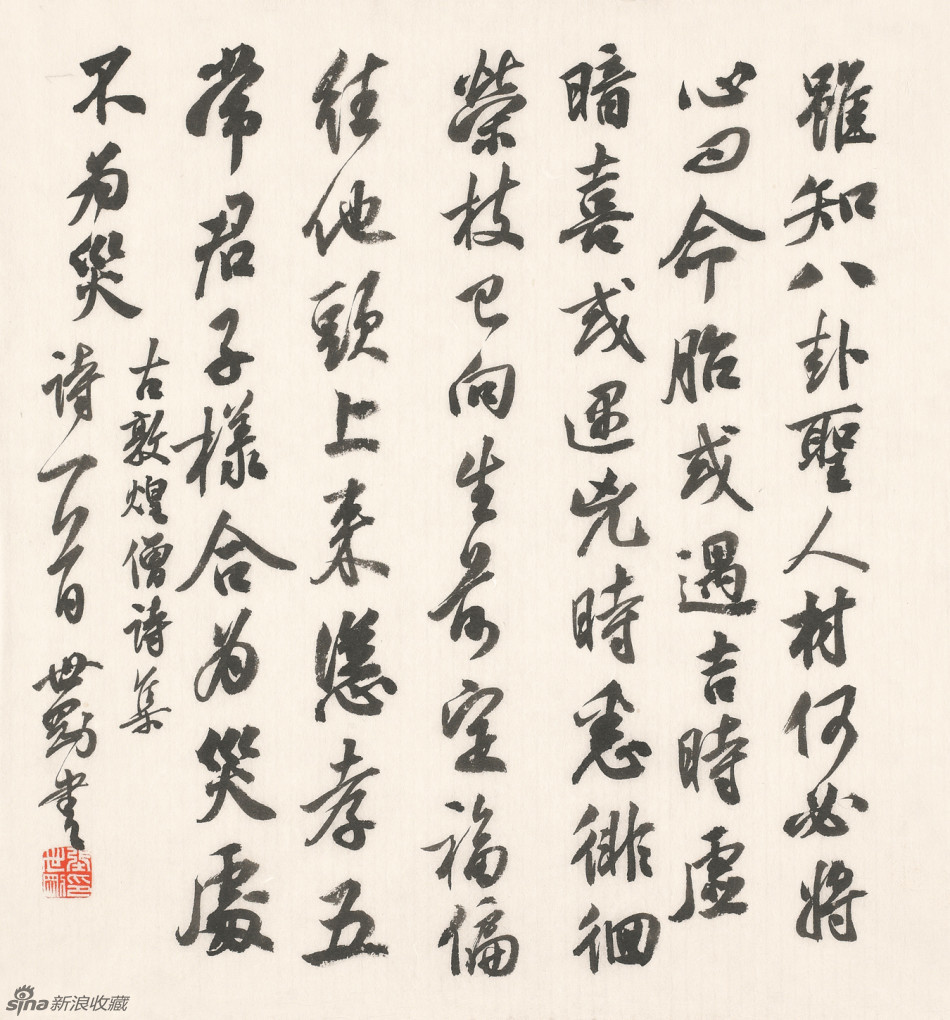 雖知八卦聖人材何必將
心回命胎或遇吉時虛
暗喜或遇兇時悉徘徊
榮枝已向生前定福偏
往他頭上來隱孝五
常君子樣合為災處
不為災
古敦煌僧詩集
詩一首 世勁書
sina新浪收藏